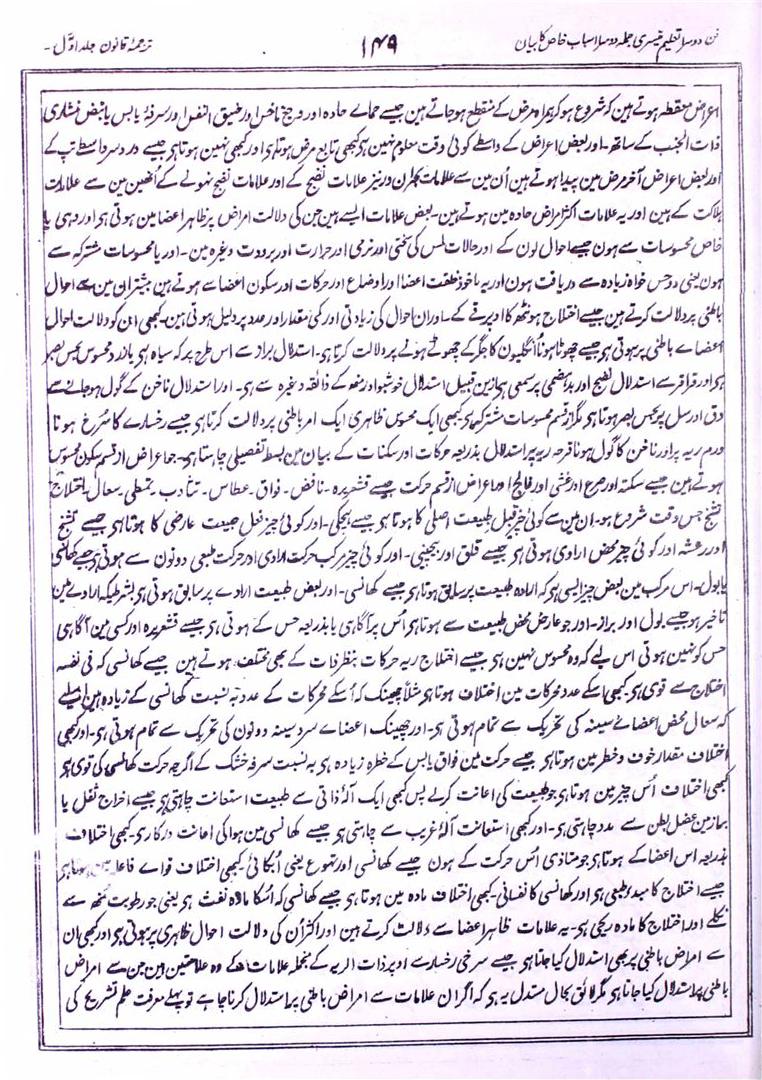 فن دوسرا تعلیم تیسری جملہ دوسرا اسباب خاص کا بیان ۱۴۹ ترجمۂ قانون جلد اوّل -
اعراض منقطہ ہوتے ہین کہ شروع ہو کر ہمراہ مرض کے منقطع ہو جاتے ہین جیسے حماے حادہ اور وجع ناخس اور ضیق النفس اور سرفۂ یابس یا نبض منشاری
ذات الجنب کے ساتھ - اور بعض اعراض کے واسطے کوئی وقت معلوم نہین ہی کبھی تابع مرض ہوتا ہی اور کبھی نہین ہوتا ہی جیسے درد سر واسطے تپ کے
اور بعض اعراض آخر مرض مین پیدا ہوتے ہین اُن مین سے علامات بحران اور نیز علامات نضج کے اور علامات نضج نہونے کے اُنھین مین سے علامات
ہلاکت کے ہین اور یہ علامات اکثر امراض حادہ مین ہوتے ہین - بعض علامات ایسے ہین جن کی دلالت امراض پر ظاہر اعضا مین ہوتی ہی اور وہی یا
خاص محسوسات سے ہون جیسے احوال لون کے اور حالات لمس کی سختی اور نرمی اور حرارت اور برودت وغیرہ مین - اور یا محسوسات مشترکہ سے
ہون یعنی دو حس خواہ زیادہ سے دریافت ہون اور یہ ماخوذ خلقت اعضا اور اوضاع اور حرکات اور سکون اعضا سے ہوتے ہین بیشتر ان مین سے احوال
باطنی پر دلالت کرتے ہین جیسے اختلاج ہونٹھ کا اوپر قے کے اور ان احوال کی زیادتی اور کمی مقدار اور عدد پر دلیل ہوتی ہین - کبھی ان کو دلالت احوال
اعضاے باطنی پر ہوتی ہی جیسے چھوٹا ہونا اُنگلیون کا جگر کے چھوٹے ہونے پر دلالت کرتا ہی - استدلال براز سے اس طرح پر کہ سیاہ ہی یا زرد محسوس بحس بصر
ہی اور قراقر سے استدلال نفخ اور بدہضمی پر سمعی ہی ازین قبیل استدلال خوشبو اور منھ کے ذائقہ وغیرہ سے ہی - اور استدلال ناخن کے گول ہو جانے سے
دق اور سل پر بحس بصر ہوتا ہی مگر از قسم محسوسات مشترکہ ہی کبھی ایک محسوس ظاہری ایک امر باطنی پر دلالت کرتا ہی جیسے رخسارے کا سُرخ ہونا
ورم ریہ پر اور ناخن کا گول ہونا قرحہ ریہ پر استدلال بذریعہ حرکات اور سکنات کے بیان مین بسط تفصیلی چاہتا ہی - جو اعراض از قسم سکون محسوس
ہوتے ہین جیسے سکتہ اور صرع اور غشی اور فالج اور اعراض از قسم حرکت جیسے قشعریرہ - نافض - فواق - عطاس - تثاؤب - تمطی - سعال - اختلاج
تشنج جس وقت شروع ہو - ان مین سے کوئی چیز قبیل طبیعت اصلی کا ہوتا ہی جیسے ہچکی - اور کوئی چیز فعل طبیعت عارضی کا ہوتا ہی جیسے تشنج
اور رعشہ اور کوئی چیز محض ارادی ہوتی ہی جیسے قلق اور بیچینی - اور کوئی چیز مرکب حرکت ارادی اور حرکت طبعی دونون سے ہوتی ہی جیسے کھانسی
یا بول - اس مرکب مین بعض چیز ایسی ہی کہ ارادہ طبیعت پر سابق ہوتا ہی جیسے کھانسی - اور بعض طبیعت ارادے پر سابق ہوتی ہی بشرطیکہ ارادے مین
تاخیر ہو جیسے بول اور براز - اور جو عارض محض طبیعت سے ہوتا ہی اُس پر آگاہی یا بذریعہ حس کے ہوتی ہی جیسے قشعریرہ اور کسی مین آگاہی
حس کو نہین ہوتی اس لیے کہ وہ محسوس نہین ہی جیسے اختلاج ریہ حرکات بنظر ذات کے بھی مختلف ہوتے ہین جیسے کھانسی کہ فی نفسہ
اختلاج سے قوی ہی - کبھی اسکے عدد محرکات مین اختلاف ہوتا ہی مثلاً چھینک کہ اُسکے محرکات کے عدد بہ نسبت کھانسی کے زیادہ ہین اسلیے
کہ سعال محض اعضاے سینہ کی تحریک سے تمام ہوتی ہی - اور چھینک اعضاے سر و سینہ دونون کی تحریک سے تمام ہوتی ہی - اور کبھی
اختلاف مقدار خوف و خطر مین ہوتا ہی جیسے حرکت مین فواق یابس کے خطرہ زیادہ ہی بہ نسبت سرفہ خشک کے اگرچہ حرکت کھانسی کی قوی ہی
کبھی اختلاف اُس چیز مین ہوتا ہی جو طبیعت کی اعانت کرے پس کبھی ایک آلۂ ذاتی سے طبیعت استعانت چاہتی ہی جیسے اخراج ثفل یا
براز مین عضل بطن سے مدد چاہتی ہی - اور کبھی استعانت آلۂ غریب سے چاہتی ہی جیسے کھانسی مین ہوا کی اعانت درکار ہی - کبھی اختلاف
بذریعہ اس اعضا کے ہوتا ہی جو متاذی اُس حرکت کے ہون جیسے کھانسی اور تہوع یعنی اُبکائی - کبھی اختلاف قواے فاعلہ مین ہوتا ہی
جیسے اختلاج کا مبدء طبعی ہی اور کھانسی کا نفسانی - کبھی اختلاف مادہ مین ہوتا ہی جیسے کھانسی کہ اُسکا مادہ نفث ہی یعنی جو رطوبت منھ سے
نکلے اور اختلاج کا مادہ ریحی ہی - یہ علامات ظاہر اعضا سے دلالت کرتے ہین اور اکثر اُن کی دلالت احوال ظاہری پر ہوتی ہی اور کبھی ان
سے امراض باطنی پر بھی استدلال کیا جاتا ہی جیسے سرخی رخسارے اوپر ذات الریہ کے منجملہ علامات کے وہ علامتین ہین جن سے امراض
باطنی پر استدلال کیا جاتا ہی مگر لائق بحال مستدل یہ ہی کہ اگر ان علامات سے امراض باطنی پر استدلال کرنا چاہے تو پہلے معرفت علم تشریح کی